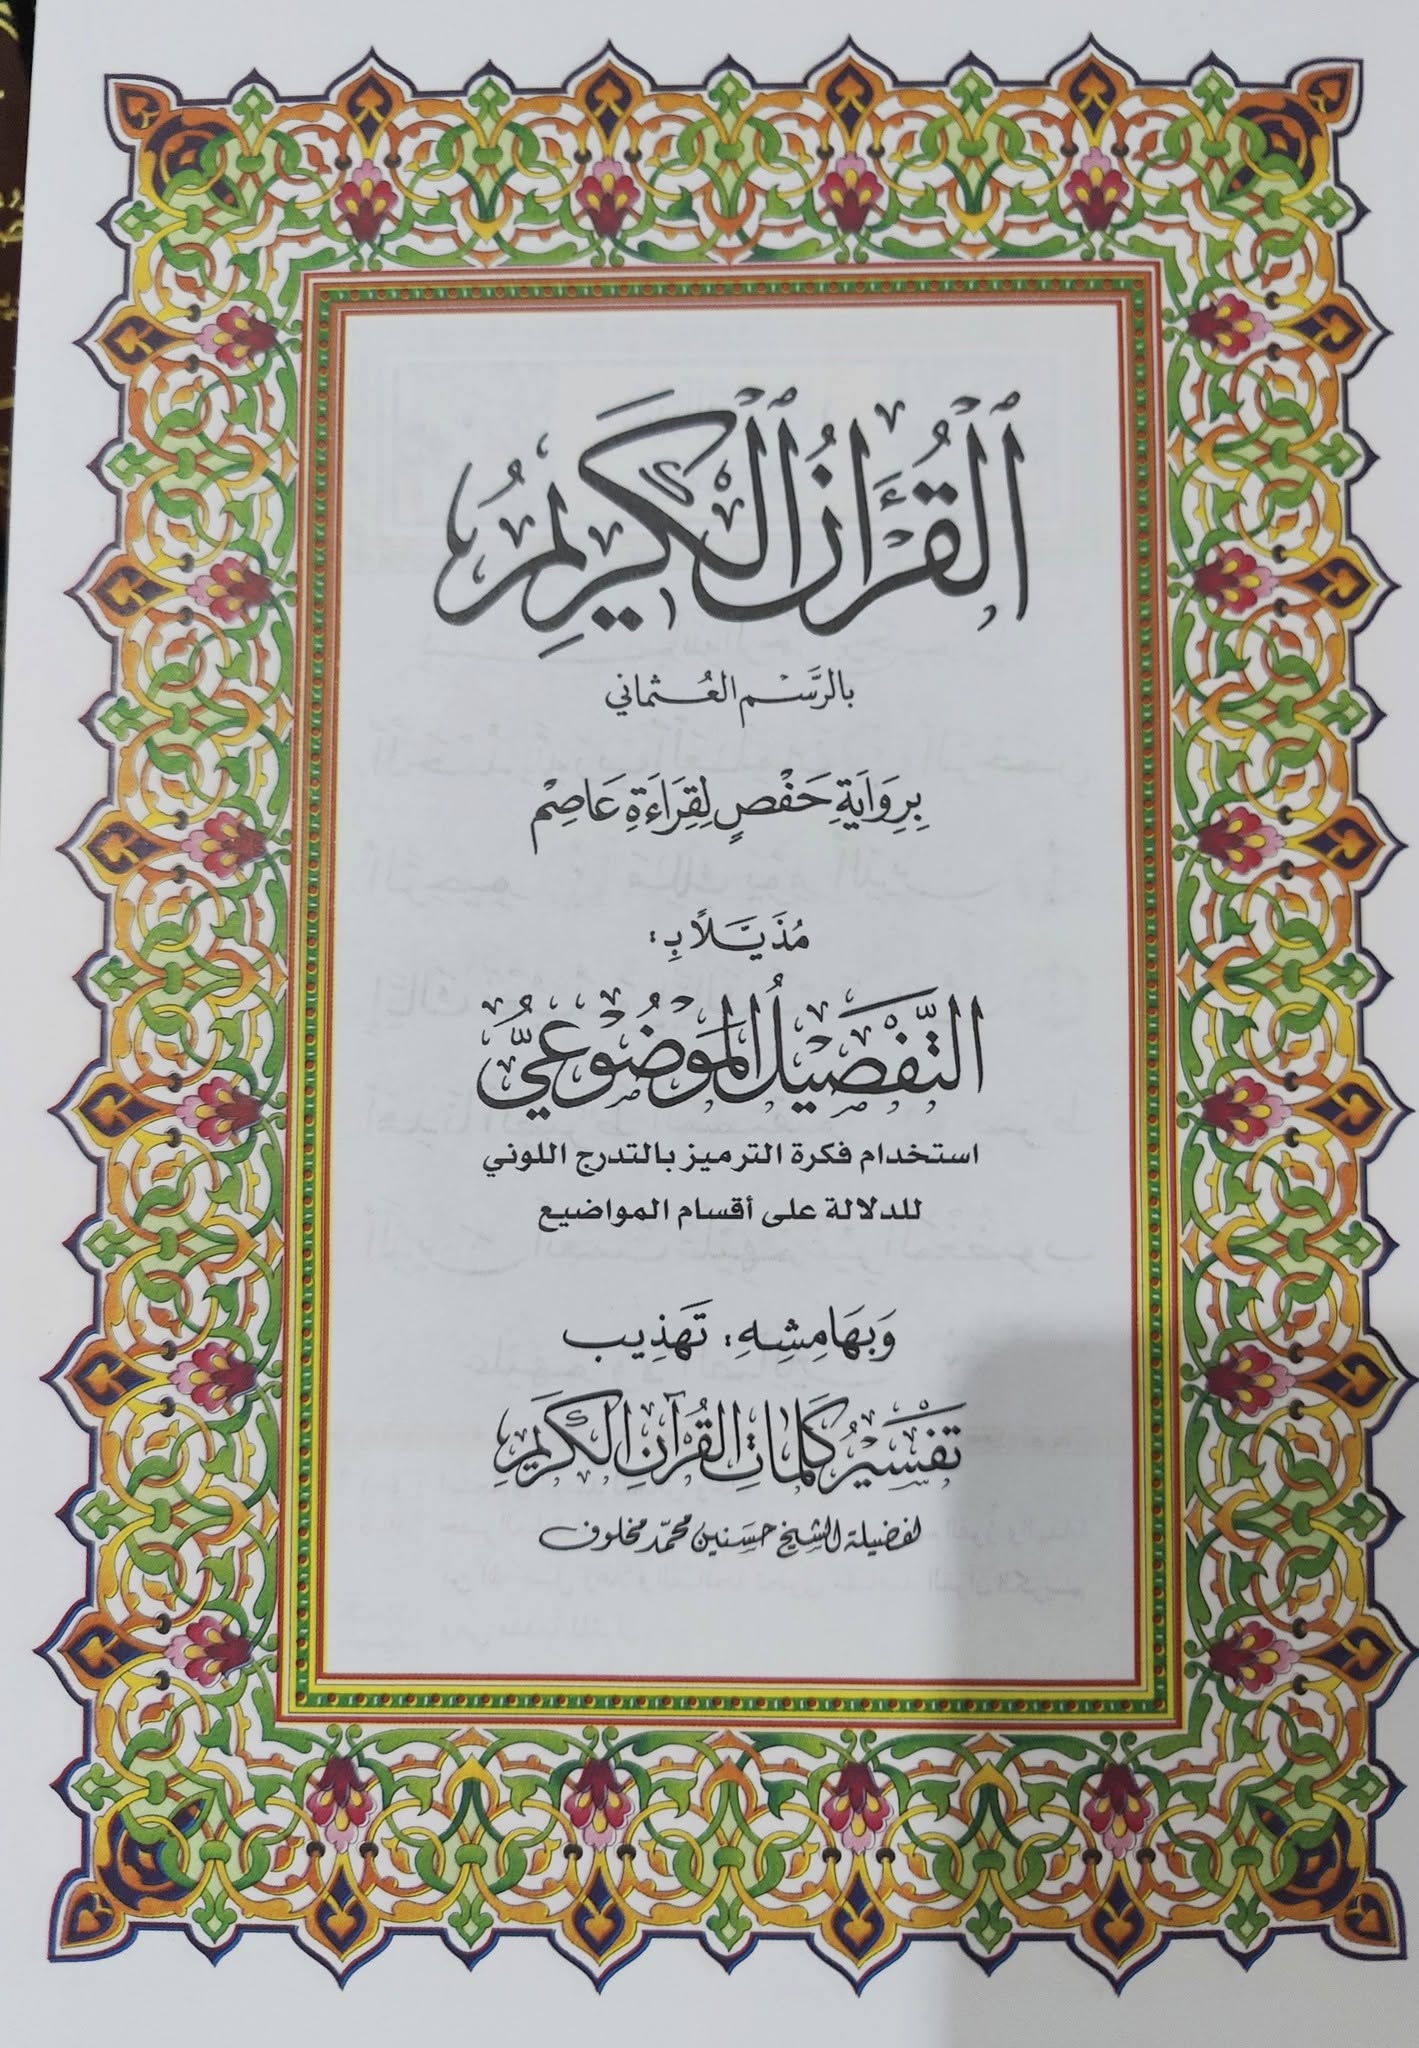 ٱلْقُرْءَانُ ٱلْكَرِيمُ
بالرَّسْم العُثماني
بِرِوَايَةِ حَفْصٍ لِقِرَاءَةِ عَاصِمْ
مُذَيَّلاً بِ:
التَّفْصِيلُ المَوْضُوعِيُّ
استخدام فكرة الترميز بالتدرج اللوني
للدلالة على أقسام المواضيع
وَبِهَامِشِهِ: تَهْذِيب
تَفْسِيْرُ كَلِمَاتِ القُرْآنِ الكَرِيْمِ
لفضيلة الشيخ حسنين محمّد مخلوف